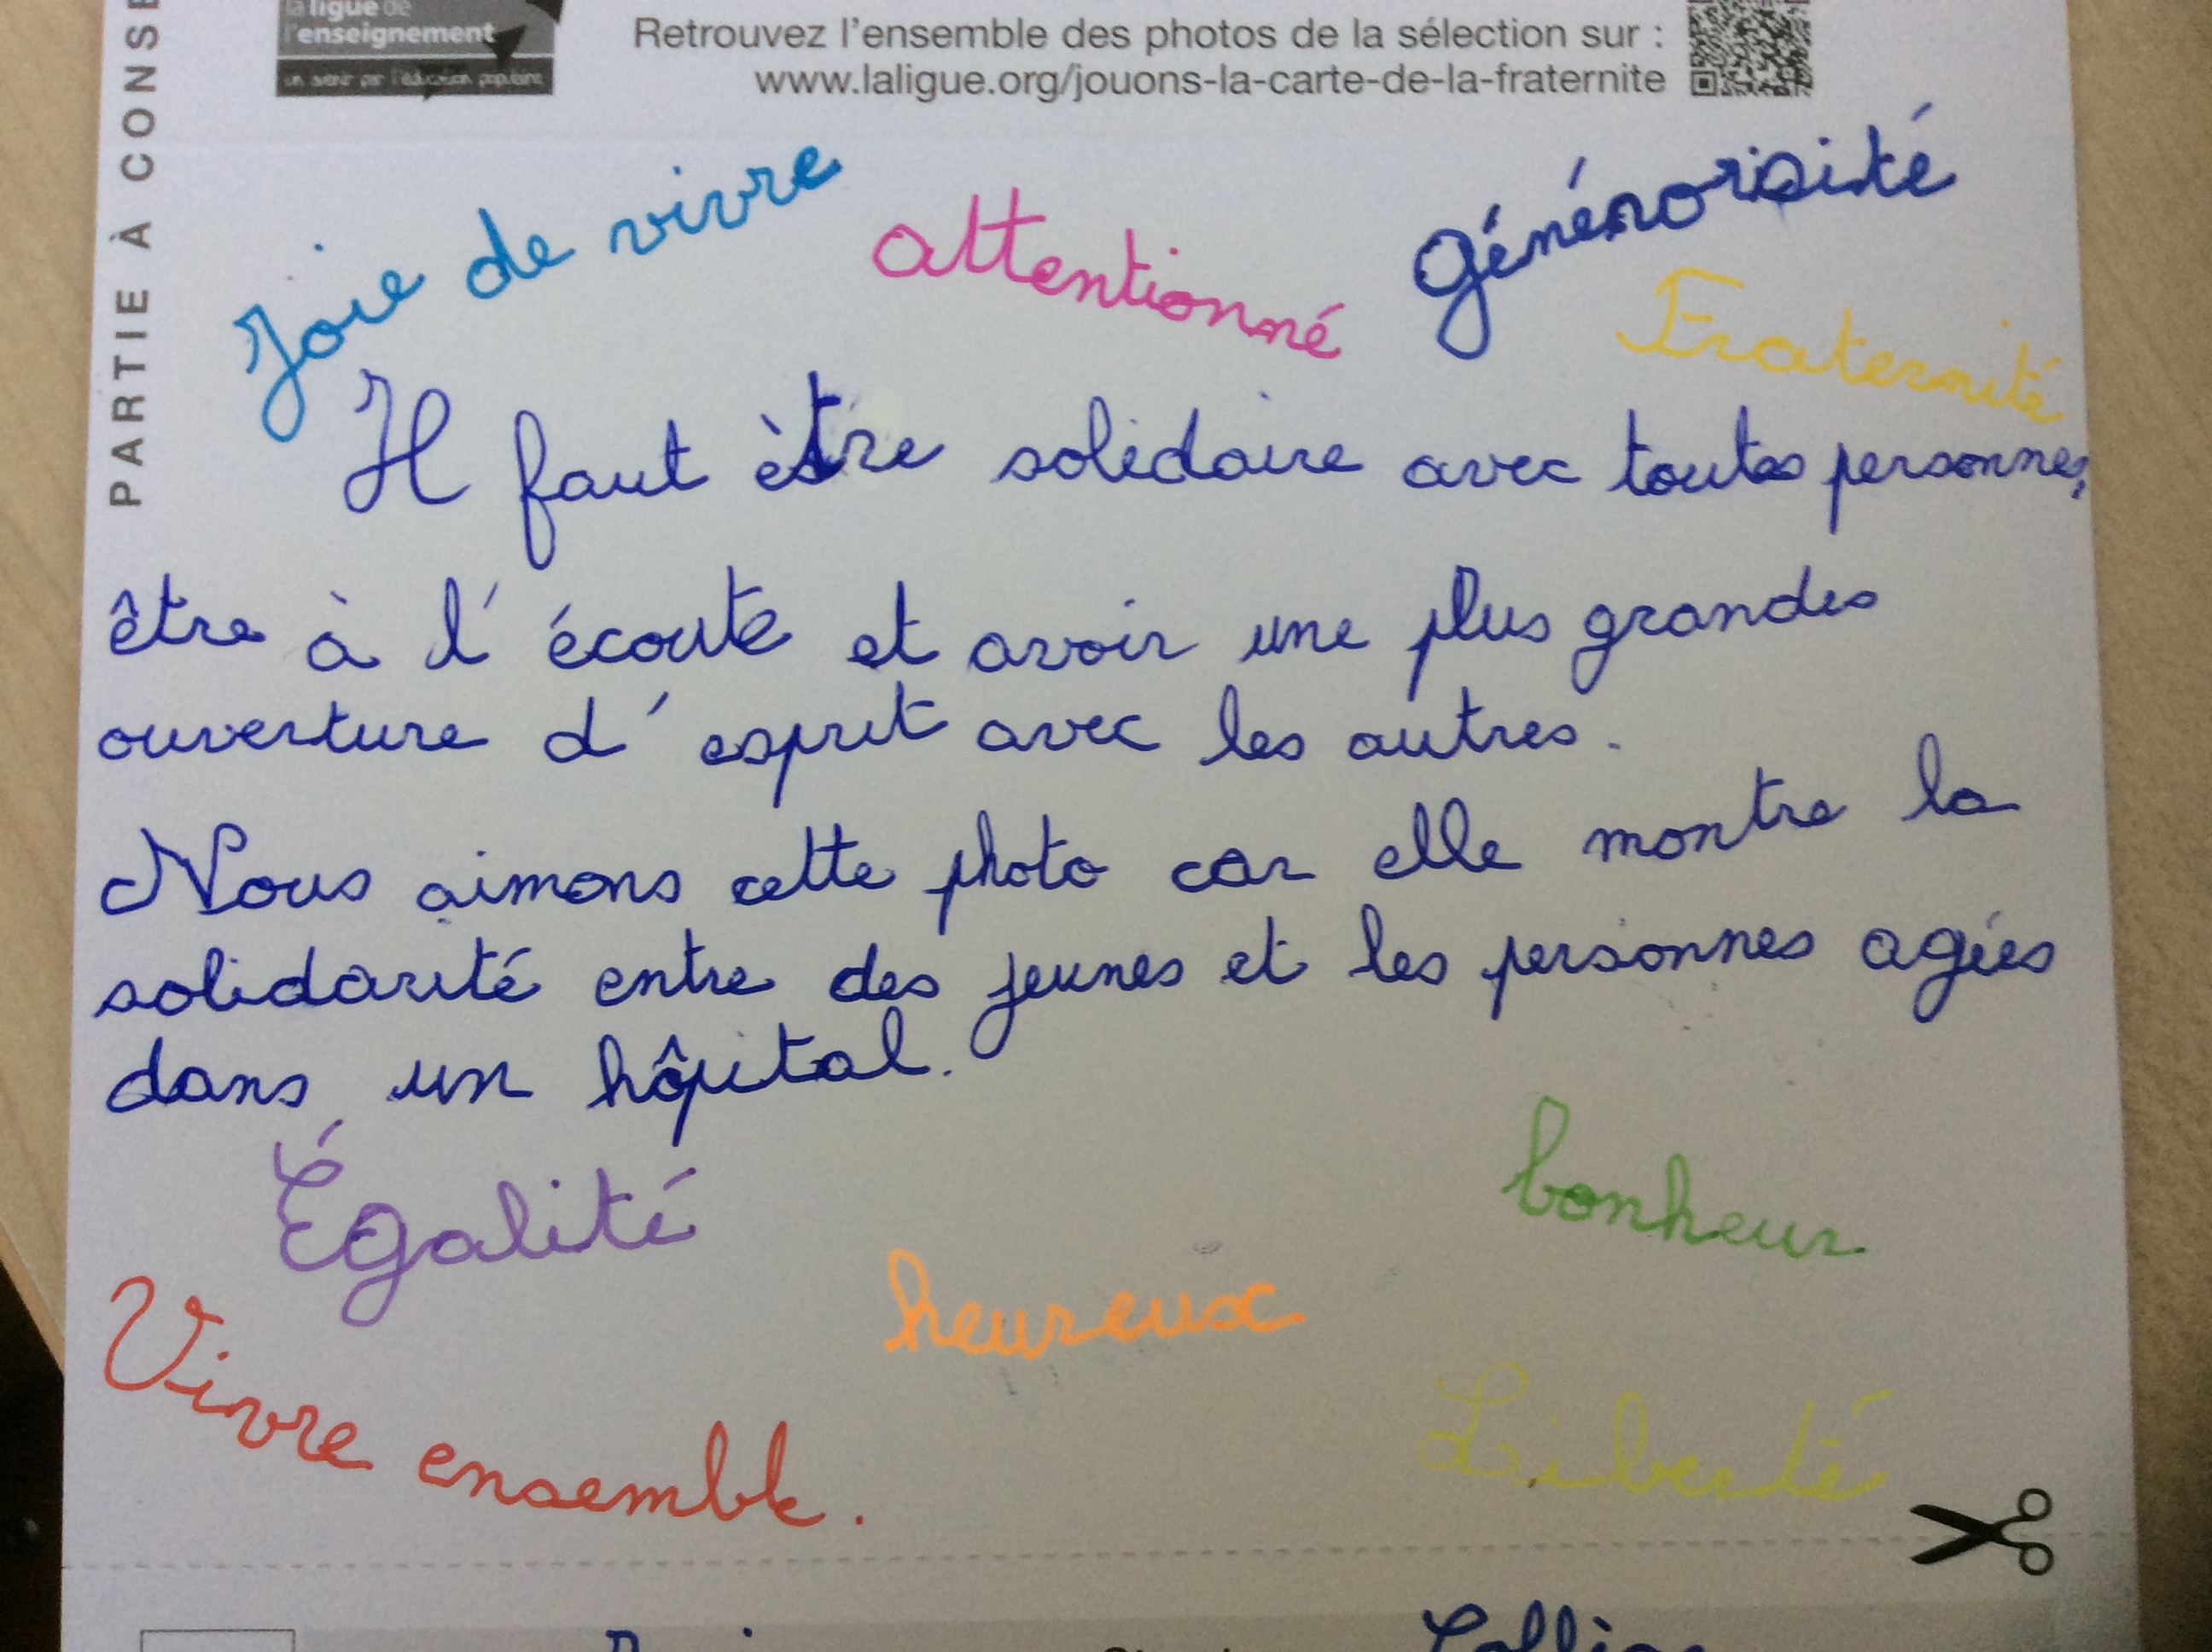 la ligue de
l'enseignement
un avenir par l'éducation populaire
Retrouvez l'ensemble des photos de la sélection sur :
www.laligue.org/jouons-la-carte-de-la-fraternite
PARTIE À CONSE
Joie de vivre
attentionné
Génénorisité
Fraternité
Il faut être solidaire avec toutes personnes,
être à l'écoute et avoir une plus grandes
ouverture d'esprit avec les autres.
Nous aimons cette photo car elle montre la
solidarité entre des jeunes et les personnes agées
dans un hôpital.
Égalité
bonheur
heureux
Vivre ensemble.
Liberté